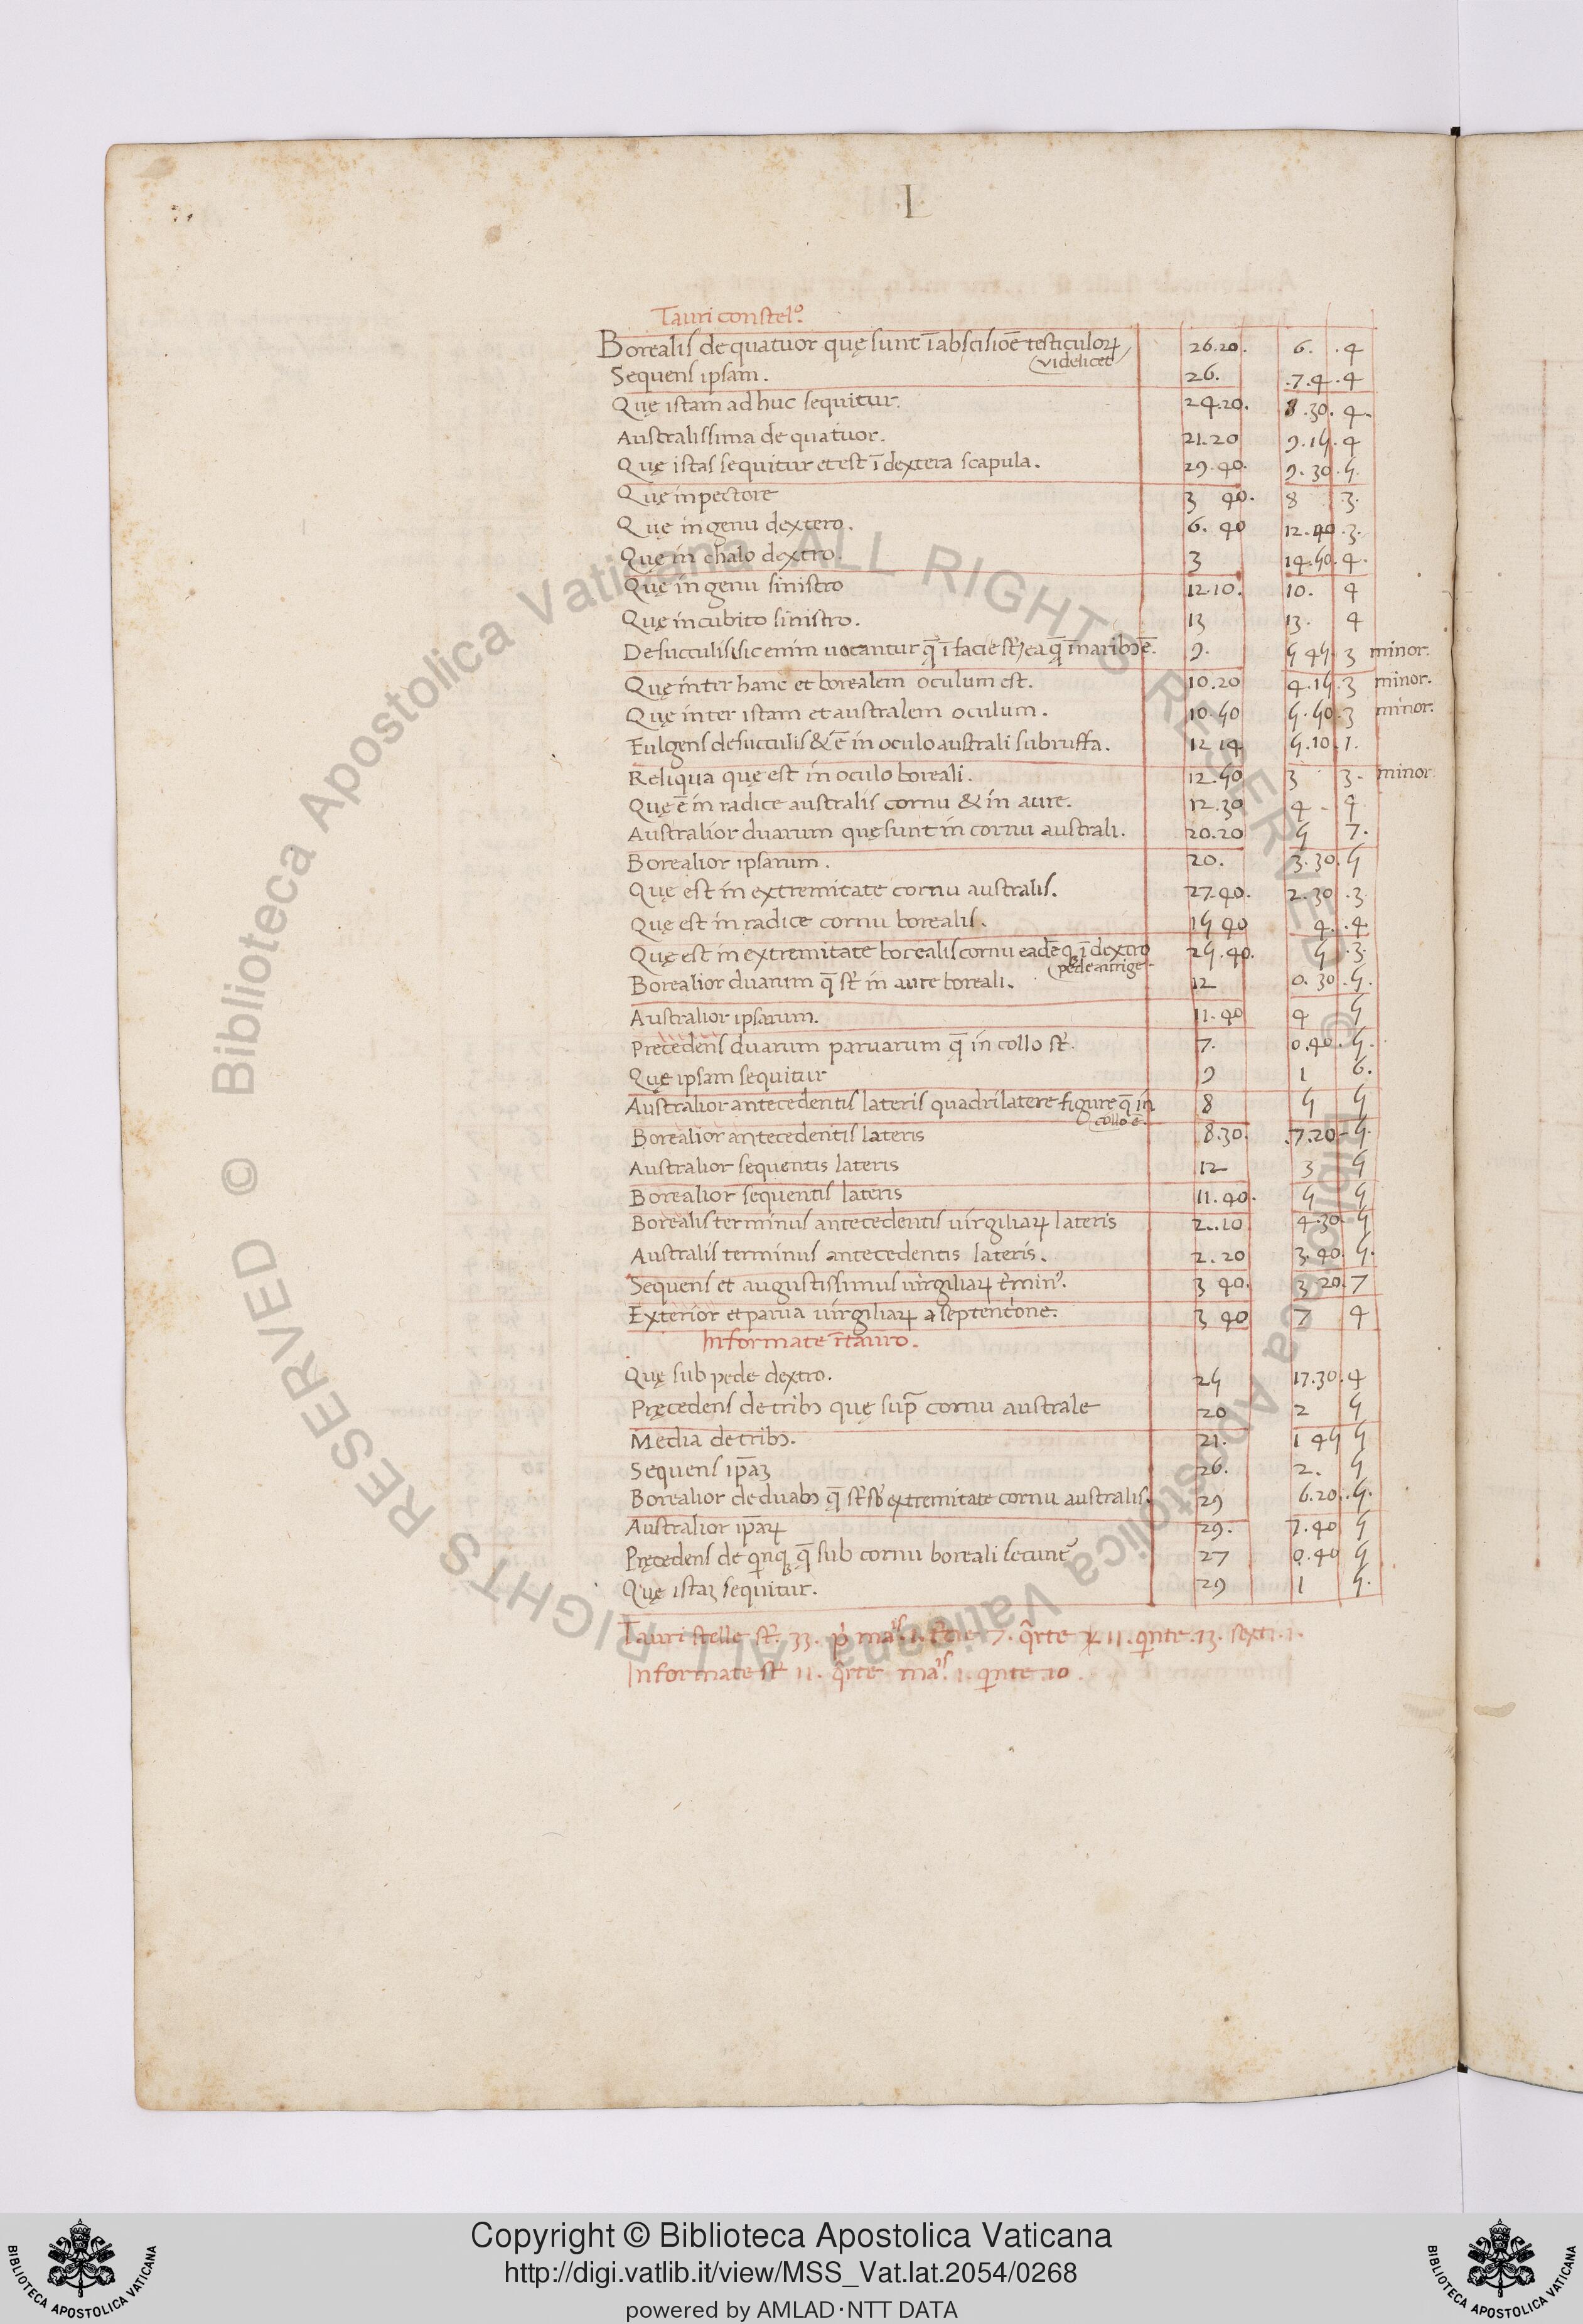 ·L·
Tauri constel°.
Borealis de quatuor quę sunt ī abscisiōe testiculoꝝ 26.20. 6. .4
videlicet
Sequens ipsam. 26. .7.4.4
Quę istam ad huc sequitur. 24.20. 8.30. 4.
Australissima de quatuor. 21.20 9.15.4
Quę istas sequitur et est ī dextera scapula. 29.40. 9.30.5.
Quę in pectore 3 40. 8 .3.
Quę in genu dextero. 6.40 12.40.3.
Quę in chalo dextro. 3 14.50.4.
Quę in genu sinistro 12.10. 10. 4
Quę in cubito sinistro. 13 13. 4
De succulis sic enim uocantur q̄ ī facie st̄ ea q̄ ī naribꝫ ē. 9. 5 45 3 minor.
Quę inter hanc et borealem oculum est. 10.20 4.15.3 minor.
Quę inter istam et australem oculum. 10.50 5.50.3 minor.
Fulgens de succulis & ē in oculo australi subruffa. 12 14 5.10.1.
Reliqua quę est in oculo boreali. 12.50 3 3. minor
Quę ē in radice australis cornu & in aure. 12.30 4 . 4
Australior duarum quę sunt in cornu australi. 20.20 5 7.
Borealior ipsarum. 20. 3.30.5
Quę est in extremitate cornu australis. 27.40. 2.30 .3
Quę est in radice cornu borealis. 15 40 4. .4.
Quę est in extremitate borealis cornu eadē q̄ ī dextro 25.40. 5 .3.
pede aurige.
Borealior duarum q̄ st̄ in aure boreali. 12 0.30.5.
Australior ipsarum. 11.40 4 5
Pręcedens duarum paruarum q̄ in collo st̄. 7. 0.40.5.
Quę ipsam sequitur 9 1 6.
Australior antecedentis lateris quadrilatere figure q̄ in 8 5 5
collo ē
Borealior antecedentis lateris 8.30. .7.20.5.
Australior sequentis lateris 12 3 5
Borealior sequentis lateris 11.40. 5 5
Borealis terminus antecedentis uirgiliaꝝ lateris 2..10 4.30.5
Australis terminus antecedentis lateris. 2.20 3.40.5.
Sequens et augustissimus uirgiliaꝝ t̄minꝰ. 3 40. 3 20.7
Exterior et parua uirgiliaꝝ a septent̄one. 3 40 7 4
Informate ī tauro.
Quę sub pede dextro. 25 17.30.4
Pręcedens de tribꝫ quę sup̄ cornu australe 20 2 5
Media de tribꝫ. 21. 1 45 5
Sequens ip̄aꝫ 26. 2. 5
Borealior de duabꝫ q̄ st̄ sb̄ extremitate cornu australis. 29 6.20..5.
Australior ip̄aꝝ 29. 7.40 5
Pręcedens de qinqꝫ q̄ sub cornu boreali secunt᷑ 27 0.40 5
Quę istaꝫ sequitur. 29 1 5.
Tauri stelle st̄. 33. p̄ mãis.1. t̄tie 7. q̄rte 11. qinte.13. sexti.1.
Informate st̄ 11. q̄rte māis. 1. qinte 10.
Biblioteca Apostolica Vaticana ALL RIGHTS RESERVED ©
Biblioteca Apostolica Vaticana ALL RIGHTS RESERVED ©
Copyright © Biblioteca Apostolica Vaticana
http://digi.vatlib.it/view/MSS_Vat.lat.2054/0268
powered by AMLAD·NTT DATA
BIBLIOTECA APOSTOLICA VATICANA
BIBLIOTECA APOSTOLICA VATICANA